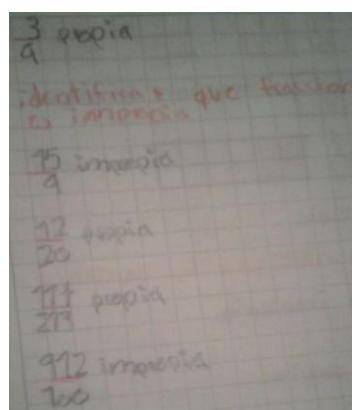 3/9 propia
identificar que fraccion
es impropia
15/9 impropia
12/20 propia
111/213 propia
912/100 impropia